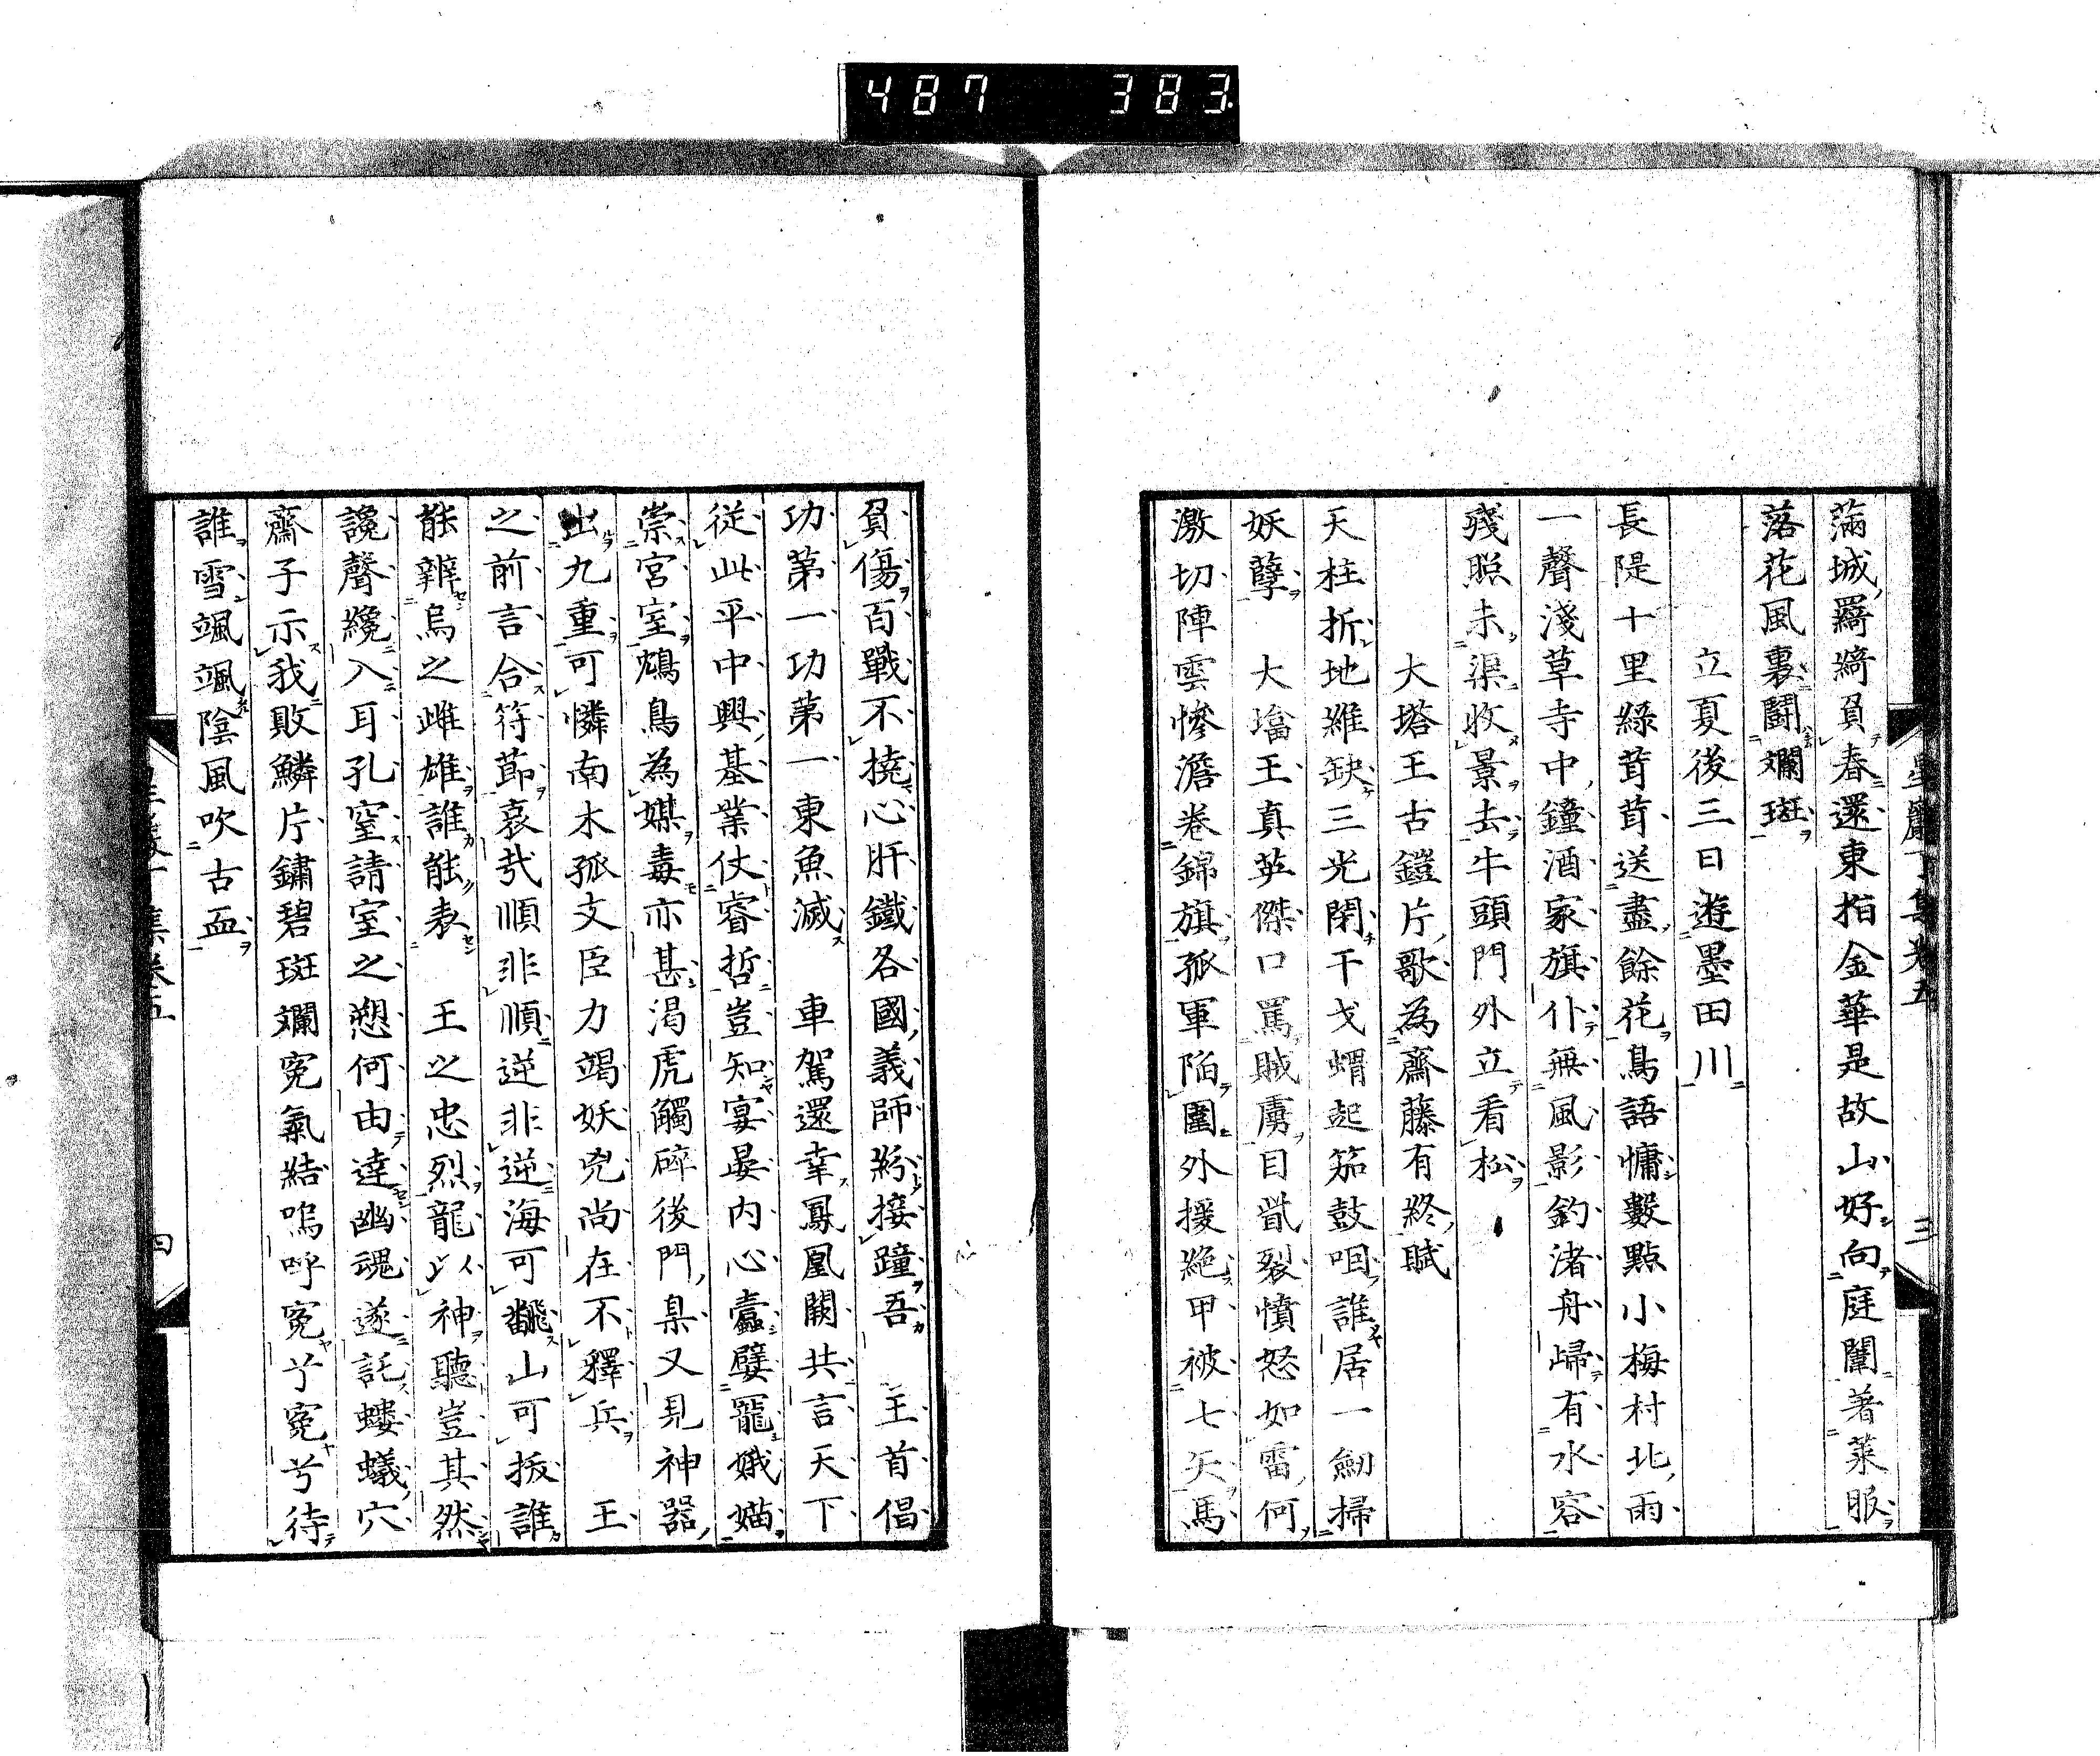 487 383
滿城羅綺負春還東指金華是故山好向庭闈著萊服
落花風裏鬪斕斑
立夏後三日遊墨田川
長隄十里綠茸茸送盡餘花鳥語慵數點小梅村北雨
一聲淺草寺中鐘酒家旗仆無風影釣渚舟歸有水容
殘照未渠收景去牛頭門外立看松
大塔王古鎧片歌為齋藤有終賦
天柱折地維缺三光閉干戈蝟起笳鼓咽誰居一劒掃
妖孽 大塔王真英傑口罵賊虜目眥裂憤怒如雷何
激切陣雲慘澹卷錦旗孤軍陷圍外援絕甲被七矢馬
星巖丁集卷五 三
負傷百戰不撓心肝鐵各國義師紛接踵吾 王首倡
功第一功第一東魚滅 車駕還幸鳳凰闕共言天下
從此平中興基業仗睿哲豈知宴晏內心蠱嬖寵娥媌
崇宮室鴆鳥為媒毒亦甚渴虎觸碎後門梟又見神器
出九重可憐南木孤文臣力竭妖兇尚在不釋兵 王
之前言合符節哀哉順非順逆非逆海可飜山可拔誰
能辨烏之雌雄誰能表 王之忠烈龍以神聽豈其然
讒聲纔入耳孔窒請室之愬何由達幽魂遂託螻蟻穴
齋子示我敗鱗片鏽碧斑斕冤氣結嗚呼冤兮冤兮待
誰雪颯颯陰風吹古血
星巖丁集卷五 四